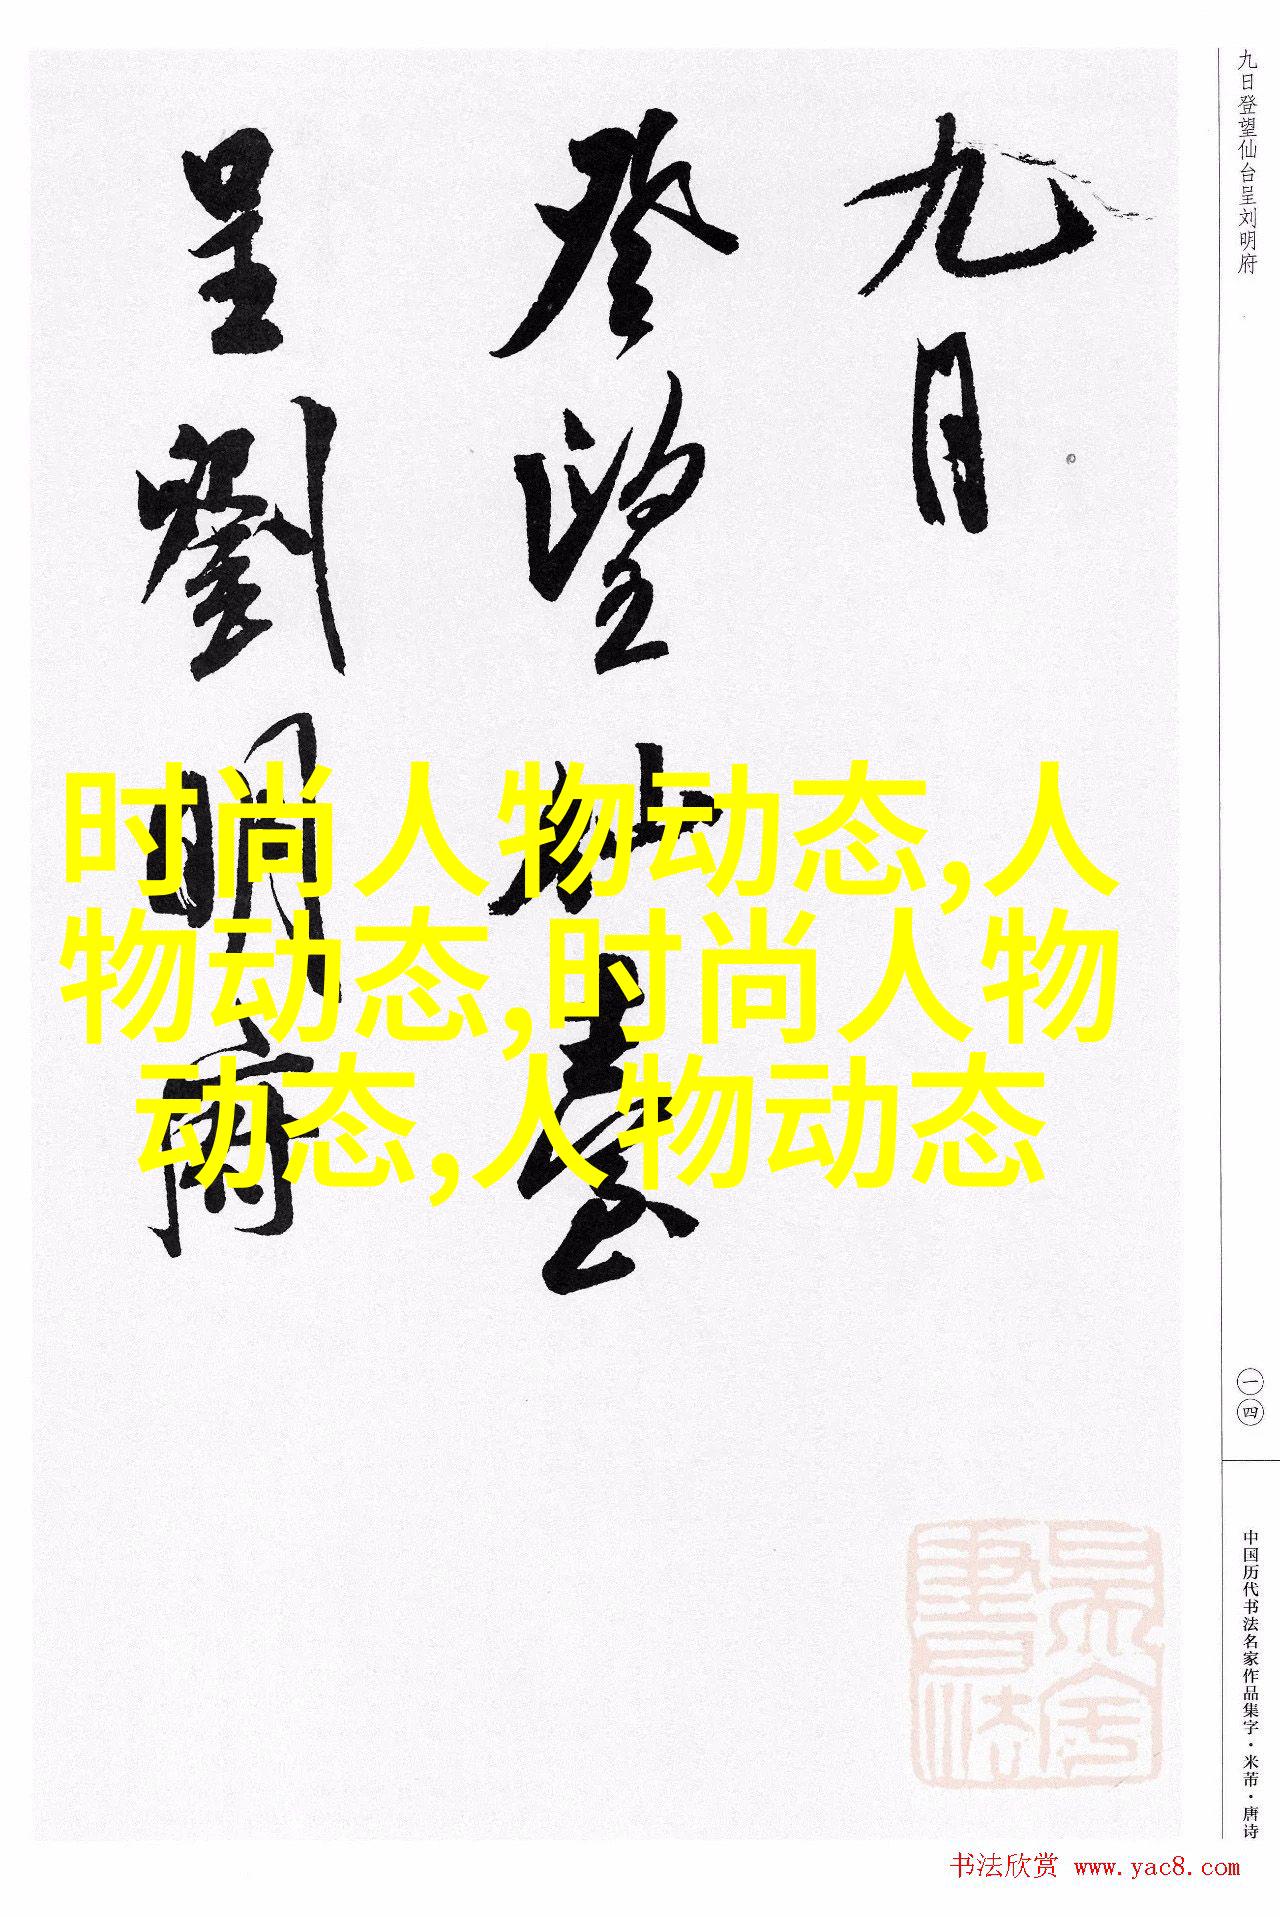 九日登望仙台呈刘明府
九日
登望仙臺
呈劉明府
时尚人物动态,人
物动态,时尚人物
动态,人物动态
一四
中国历代书法名家作品集字·米芾·唐诗
书法欣赏 www.yac8.com